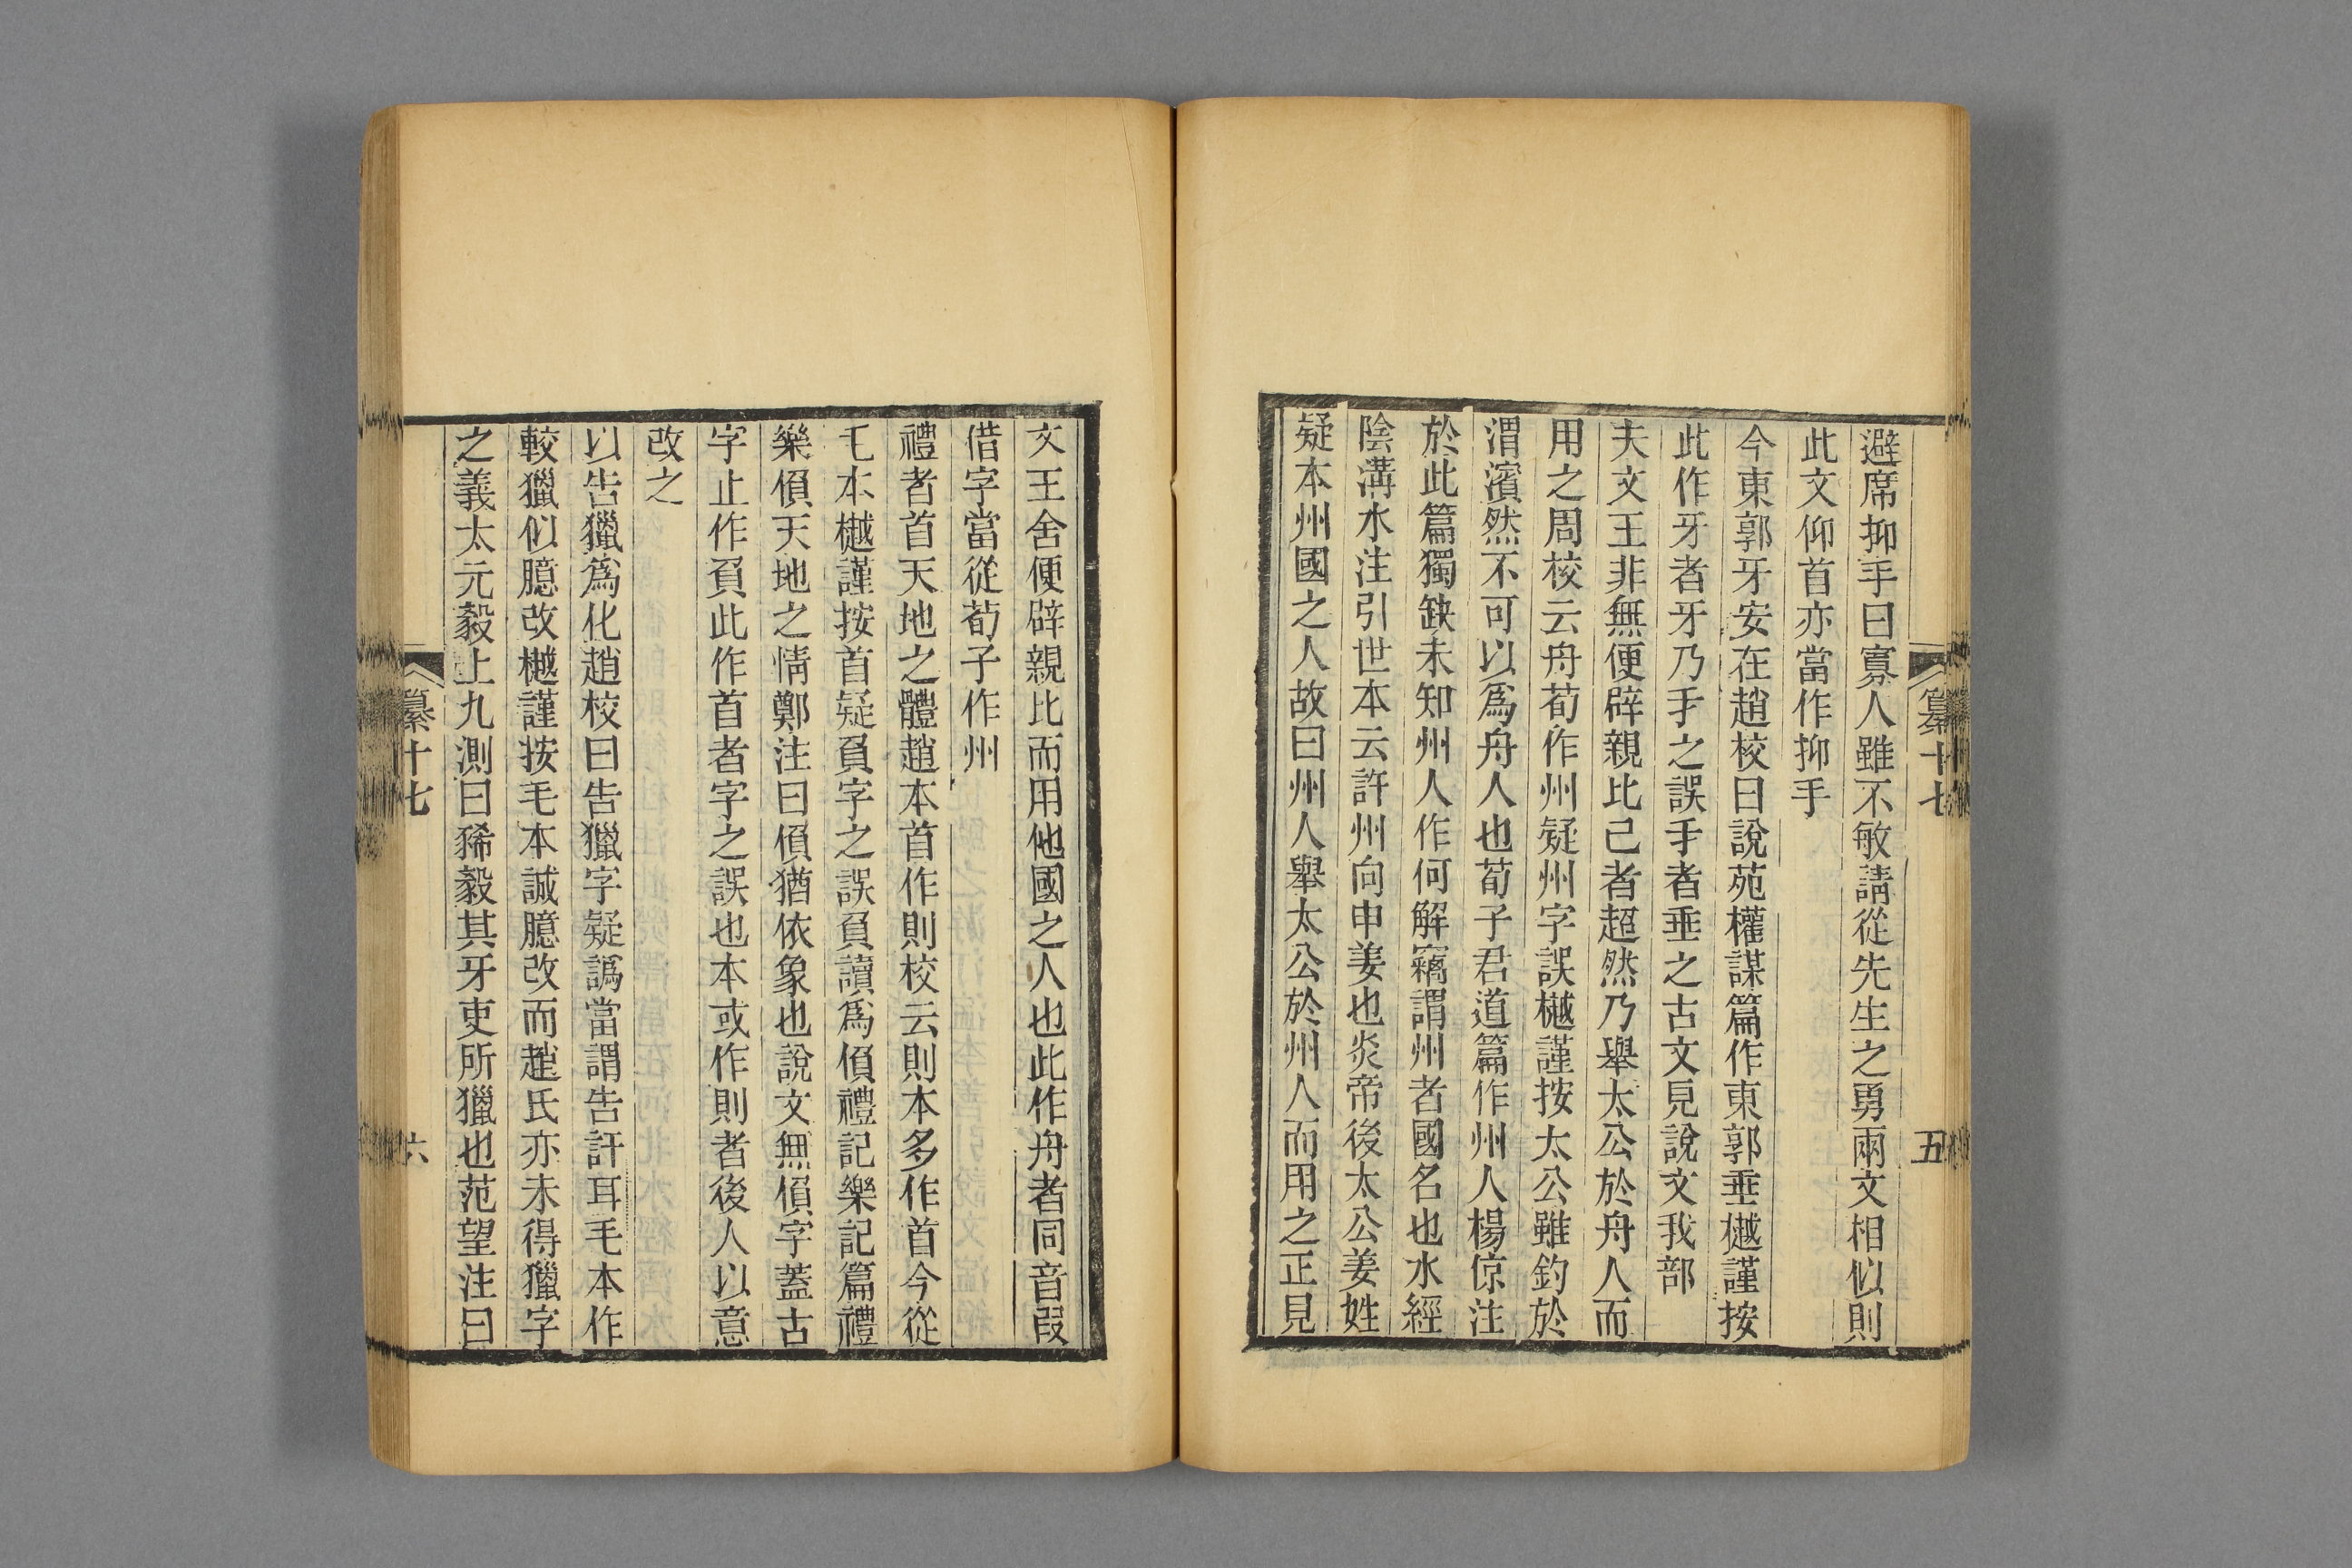 避席抑手曰寡人雖不敏請從先生之勇兩文相似則
此文仰首亦當作抑手
今東郭牙安在趙校曰說苑權謀篇作東郭垂樾謹按
此作牙者牙乃𠂹之誤𠂹者垂之古文見說文我部
夫文王非無便辟親比己者超然乃舉太公於舟人而
用之周校云舟荀作州疑州字誤樾謹按太公雖釣於
渭濱然不可以爲舟人也荀子君道篇作州人楊倞注
於此篇獨缺未知州人作何解竊謂州者國名也水經
陰溝水注引世本云許州向申姜也炎帝後太公姜姓
疑本州國之人故曰州人舉太公於州人而用之正見
纂十七
五
文王舍便辟親比而用他國之人也此作舟者同音叚
借字當從荀子作州
禮者首天地之體趙本首作則校云則本多作首今從
毛本樾謹按首疑負字之誤負讀爲偩禮記樂記篇禮
樂偩天地之情鄭注曰偩猶依象也說文無偩字蓋古
字止作負此作首者字之誤也本或作則者後人以意
改之
以告獵爲化趙校曰告獵字疑譌當謂告訐耳毛本作
較獵似臆改樾謹按毛本誠臆改而趙氏亦未得獵字
之義太元毅上九測曰豨毅其牙吏所獵也范望注曰
纂十七
六